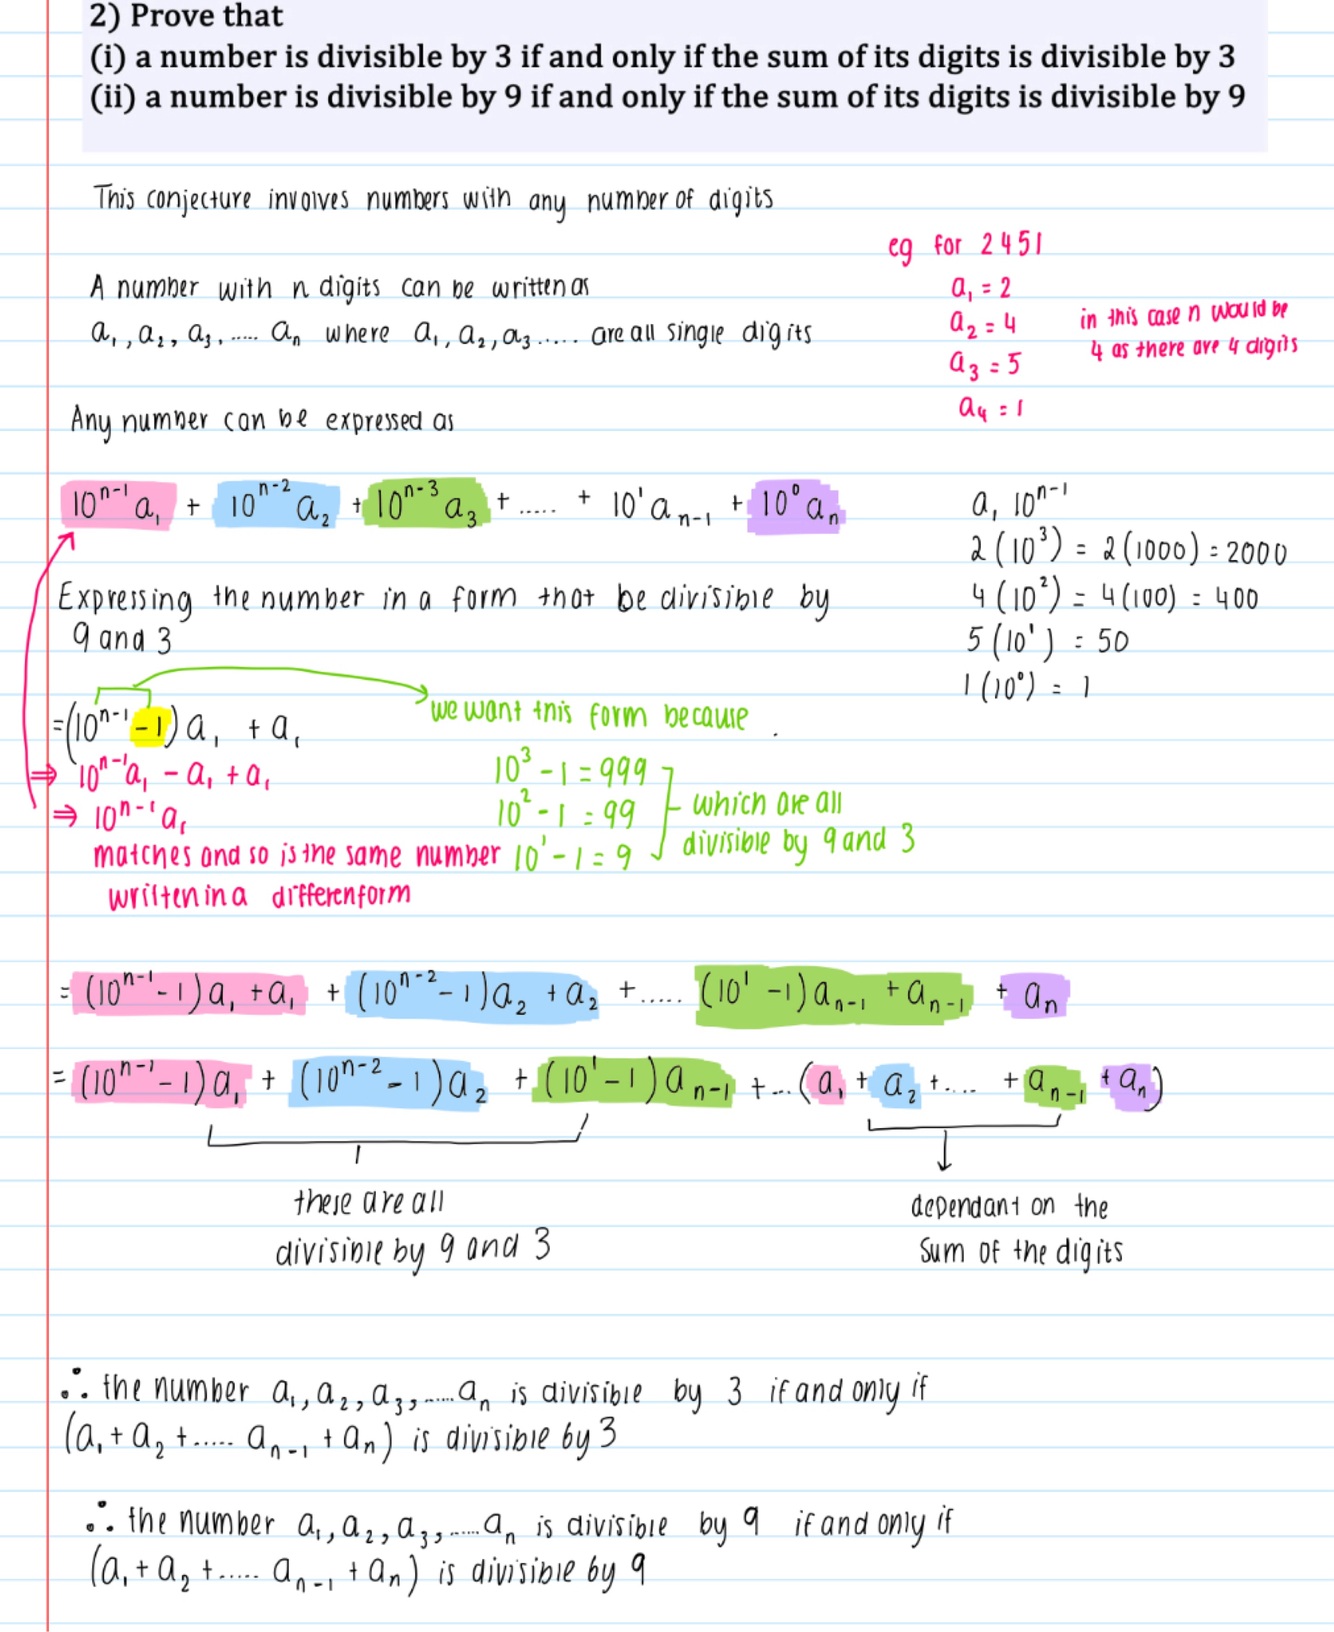 2) Prove that
(i) a number is divisible by 3 if and only if the sum of its digits is divisible by 3
(ii) a number is divisible by 9 if and only if the sum of its digits is divisible by 9
This conjecture involves numbers with any number of digits
eg for 2451
A number with n digits can be written as
a₁, a₂, a₃, ..... aₙ where a₁, a₂, a₃ ..... are all single digits
a₁ = 2
a₂ = 4
a₃ = 5
a₄ = 1
in this case n would be
4 as there are 4 digits
Any number can be expressed as
10ⁿ⁻¹a₁ + 10ⁿ⁻²a₂ + 10ⁿ⁻³a₃ + ..... + 10¹aₙ₋₁ + 10⁰aₙ
a₁ 10ⁿ⁻¹
2(10³) = 2(1000) = 2000
4(10²) = 4(100) = 400
5(10¹) = 50
1(10⁰) = 1
Expressing the number in a form that be divisible by
9 and 3
=(10ⁿ⁻¹ -1)a₁ + a₁
⇒ 10ⁿ⁻¹a₁ - a₁ + a₁
⇒ 10ⁿ⁻¹a₁
matches and so is the same number
written in a differen form
we want this form because
10³ - 1 = 999
10² - 1 = 99
10¹ - 1 = 9
which are all
divisible by 9 and 3
= (10ⁿ⁻¹ - 1)a₁ + a₁ + (10ⁿ⁻² - 1)a₂ + a₂ + ..... (10¹ - 1)aₙ₋₁ + aₙ₋₁ + aₙ
= (10ⁿ⁻¹ - 1)a₁ + (10ⁿ⁻² - 1)a₂ + (10¹ - 1)aₙ₋₁ + ... (a₁ + a₂ + .... + aₙ₋₁ + aₙ)
these are all
divisible by 9 and 3
dependant on the
sum of the digits
∴ the number a₁, a₂, a₃, ..... aₙ is divisible by 3 if and only if
(a₁ + a₂ + ..... aₙ₋₁ + aₙ) is divisible by 3
∴ the number a₁, a₂, a₃, ..... aₙ is divisible by 9 if and only if
(a₁ + a₂ + ..... aₙ₋₁ + aₙ) is divisible by 9